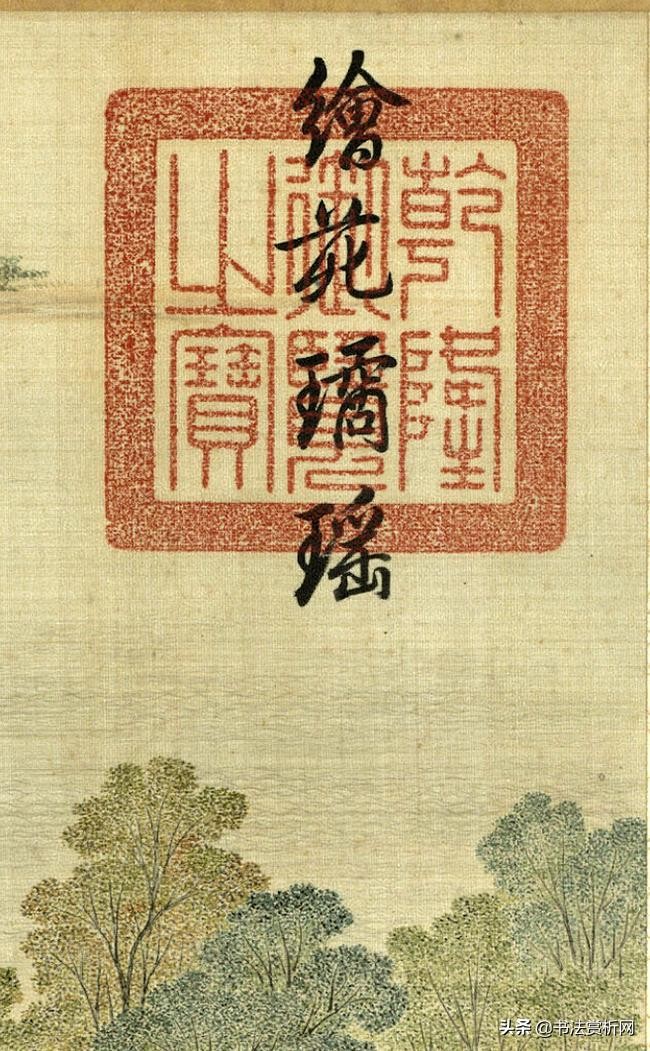 繪苑璚瑤
乾隆
御覽
之寶
头条 @书法赏析网